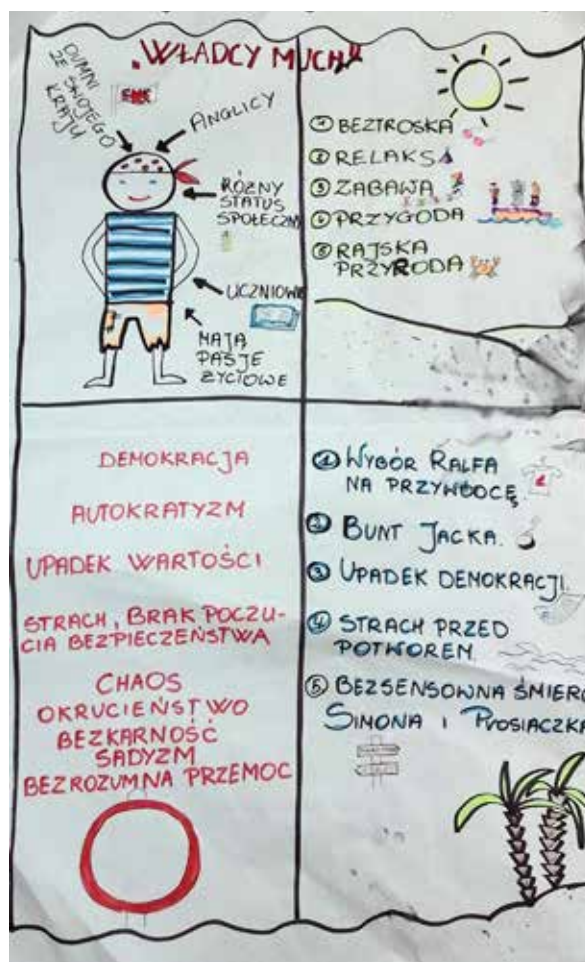 „WŁADCY MUCH”
DUMNI
ZE
SWOJEGO
KRAJU
ANGLICY
RÓŻNY
STATUS
SPOŁECZNY
UCZNIOWIE
MAJĄ
PASJE
ŻYCIOWE
① BEZTROSKA
② RELAKS
③ ZABAWA
④ PRZYGODA
⑤ RAJSKA
PRZYRODA
DEMOKRACJA
AUTOKRATYZM
UPADEK WARTOŚCI
STRACH, BRAK POCZU-
CIA BEZPIECZEŃSTWA
CHAOS
OKRUCIEŃSTWO
BEZKARNOŚĆ
SADYZM
BEZROZUMNA PRZEMOC
① WYBÓR RALFA
NA PRZYWÓDCĘ
② BUNT JACKA.
③ UPADEK DEMOKRACJI.
④ STRACH PRZED
POTWOREM
⑤ BEZSENSOWNA ŚMIERĆ
SIMONA I PROSIACZKA